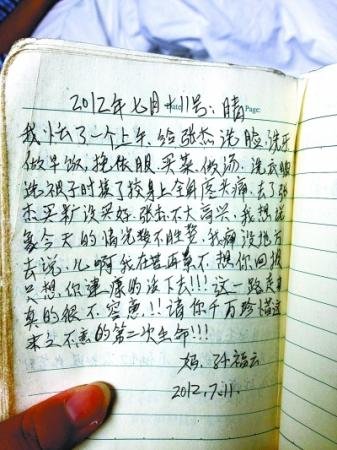 2012年七月11号:晴
Date Page:
我忙了一个上午、给张杰洗脸、洗牙
做早饭、挽依服、买菜、做汤、洗衣服
洗裤子时接了 身上全身疼头痛、去了张
杰买 没买好、张杰不大高兴、我想
今天的 不胜 、我痛没地方
去说、儿啊我在苦再累不想你回报
只想你健康的活下去!!!这一路走来
真的很不容意!!请你千万珍惜这
来之不易的第二次生命!!!
妈、孙福云
2012.7.11.